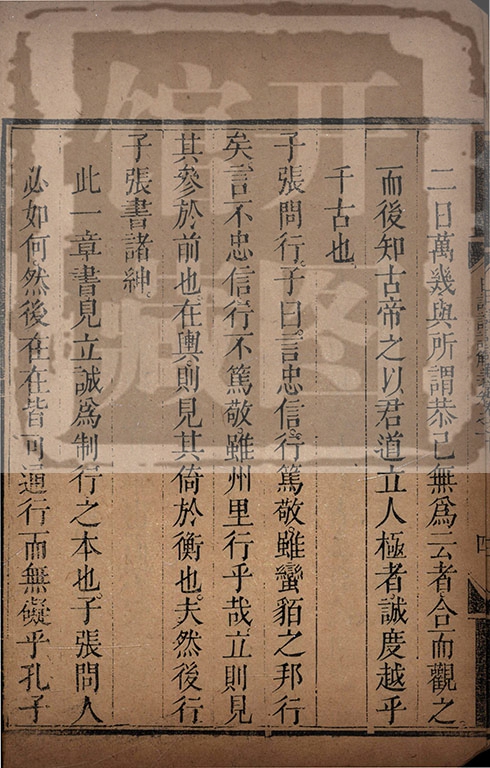 二日萬幾與所謂恭己無爲云者合而觀之
而後知古帝之以君道立人極者誠度越乎
千古也
子張問行子曰言忠信行篤敬雖蠻貊之邦行
矣言不忠信行不篤敬雖州里行乎哉立則見
其參於前也在輿則見其倚於衡也夫然後行
子張書諸紳
此一章書見立誠爲制行之本也子張問人
必如何然後在在皆可通行而無礙乎孔子
開圖
館藏